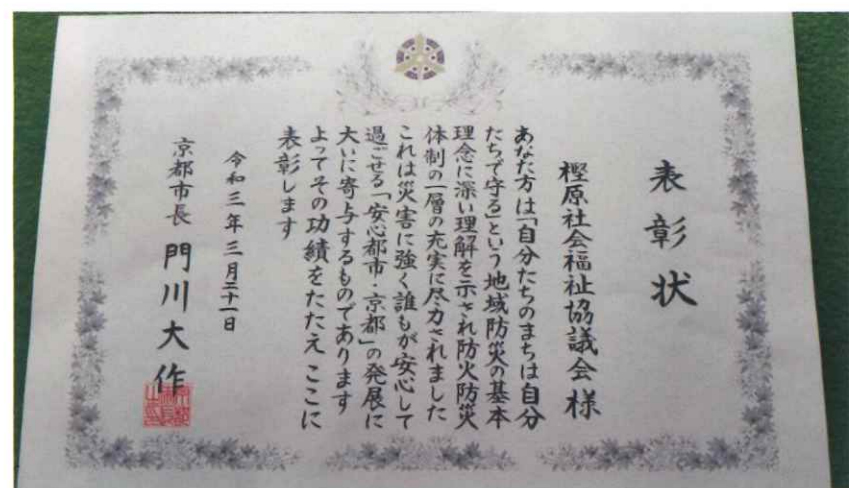 表彰状
樫原社会福祉協議会様
あなた方は「自分たちのまちは自分
たちで守る」という地域防災の基本
理念に深い理解を示され防火防災
体制の一層の充実に尽力されました
これは災害に強く誰もが安心して
過ごせる「安心都市・京都」の発展に
大いに寄与するものであります
よってその功績をたたえここに
表彰します
令和三年三月二十一日
京都市長 門川大作